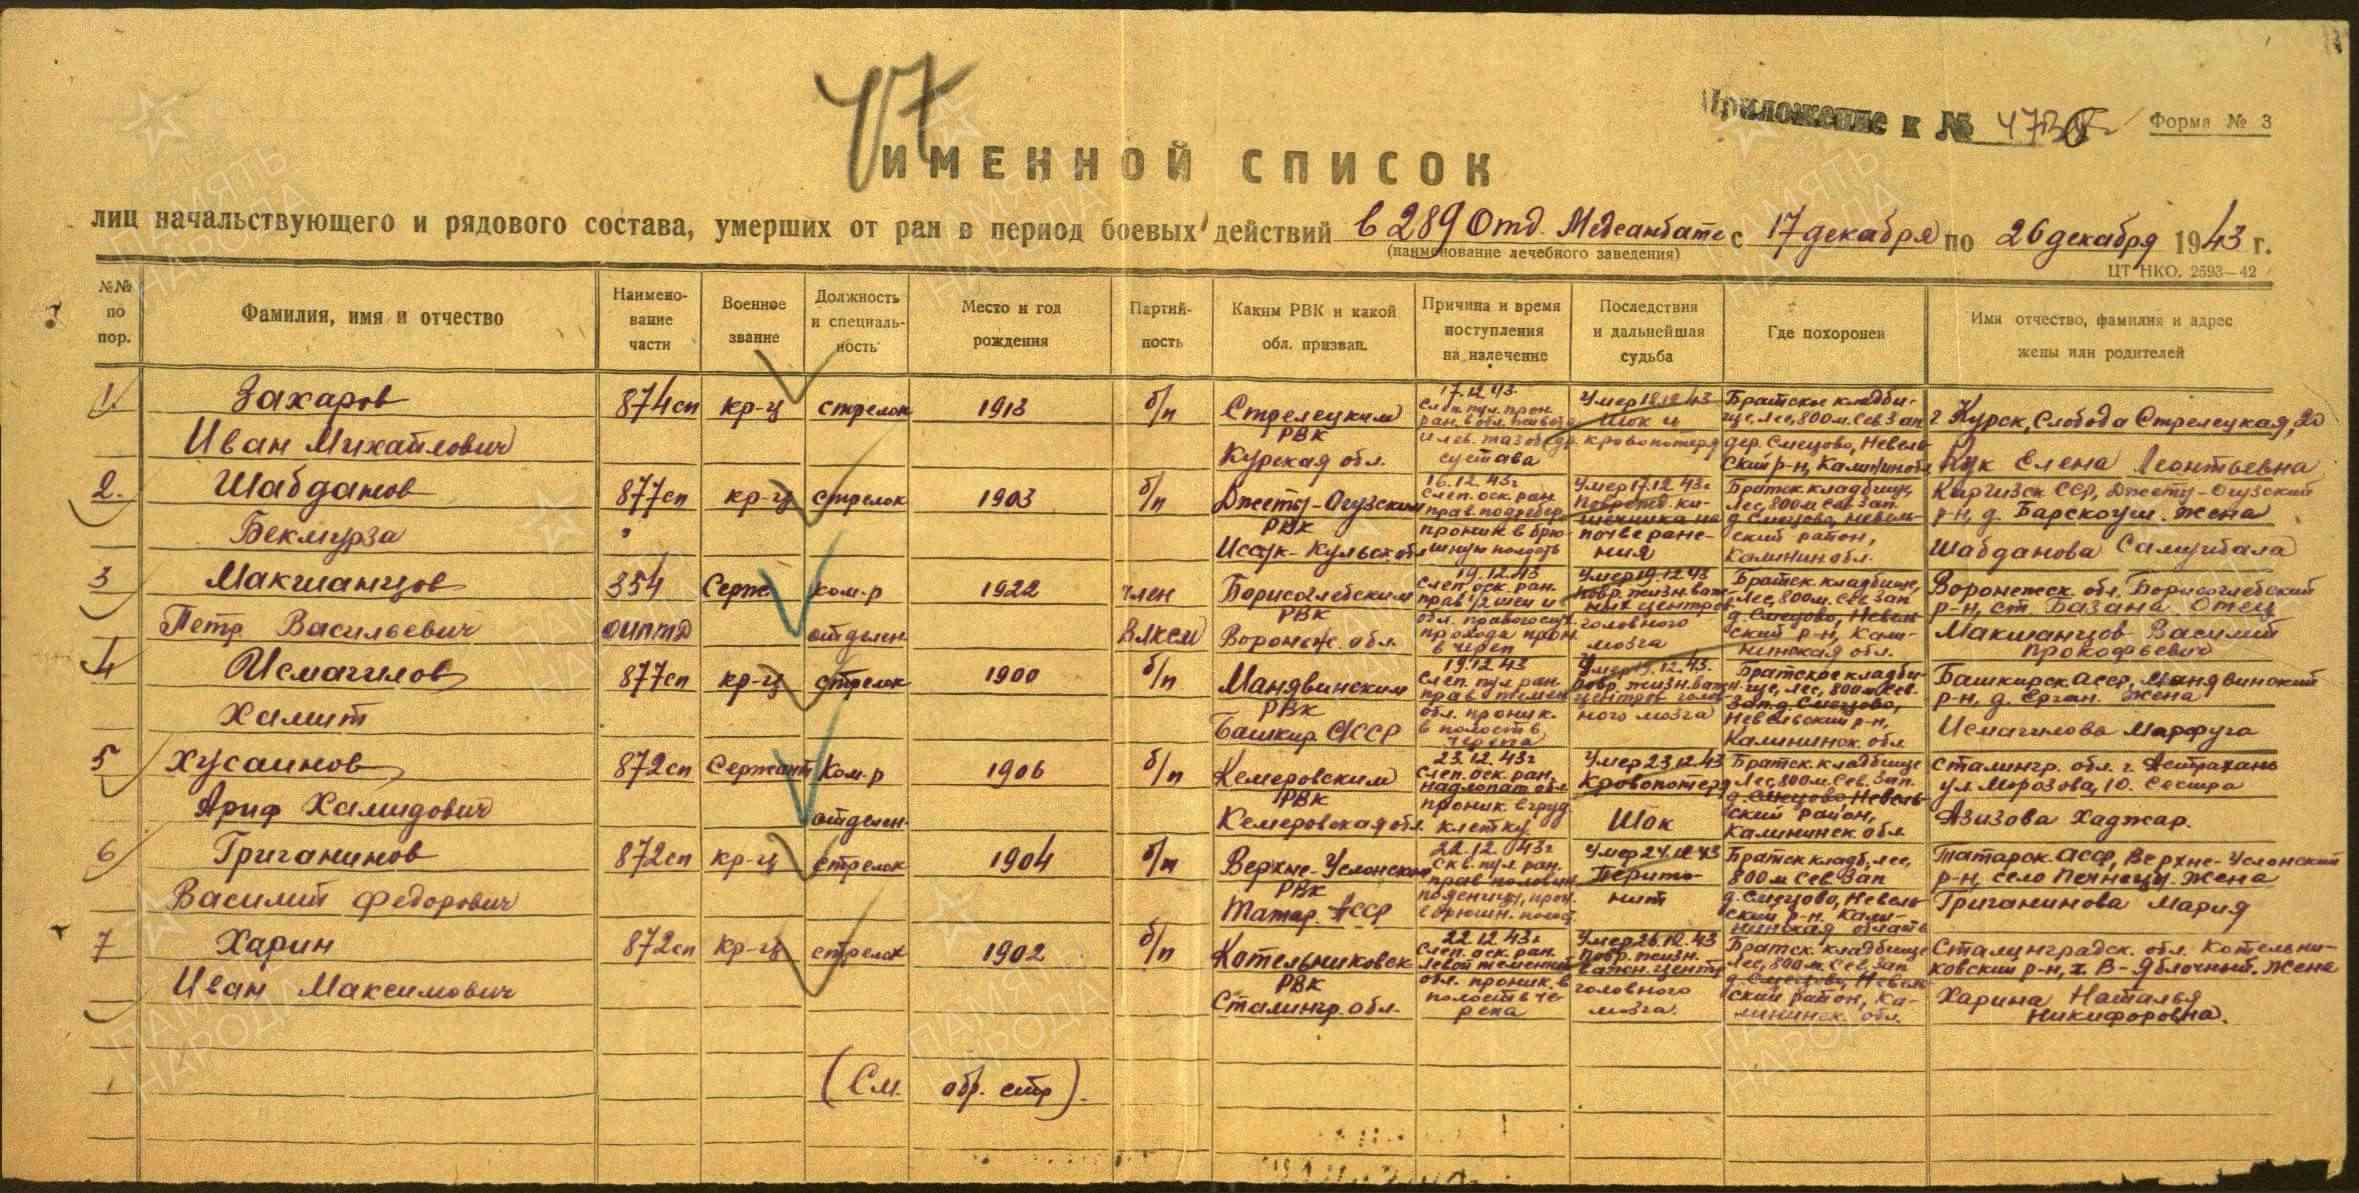 47
Приложение к № 473
Форма № 3
ИМЕННОЙ СПИСОК
лиц начальствующего и рядового состава, умерших от ран в период боевых действий в 289 Отд. Медсанбате с 17 декабря по 26 декабря 1943 г.
(наименование лечебного заведения)
ЦТ НКО. 2593—42
№№ по пор.
Фамилия, имя и отчество
Наимено-
вание
части
Военное
звание
Должность
и специаль-
ность
Место и год
рождения
Партий-
ность
Каким РВК и какой
обл. призван.
Причина и время
поступления
на излечение
Последствия
и дальнейшая
судьба
Где похоронен
Имя отчество, фамилия и адрес
жены или родителей
1.
Захаров
Иван Михайлович
874 сп
кр-ц
стрелок
1913
б/п
Стрелецким
РВК
Курская обл.
17.12.43
Слеп. пул. прон.
ран. в обл. живота
и лев. тазобедр.
сустава
Умер 18.12.43
Шок и
кровопотеря
Братское кладби-
ще, Лес, 800 м. Сев Зап
дер. Смецово, Невель-
ский р-н, Калинин обл
г. Курск, Слобода Стрелецкая, 20
Рук Елена Леонтьевна
2.
Шабданов
Бекмурза
877 сп
кр-ц
стрелок
1903
б/п
Джеты-Огузским
РВК
Иссук-Кульск. обл
16.12.43г
Слеп. оск. ран.
прав. подребер.
проник в брю-
шную полость
Умер 17.12.43г
Поврежд. ки-
шечника на
почве ране-
ния
Братск. кладбище,
Лес, 800 м Сев Зап.
д. Смецово, Невель-
ский район,
Калинин обл.
Киргизск ССР, Джеты-Огузский
р-н, д. Барскоун. Жена
Шабданова
3
Макшанцов
Петр Васильевич
354
ОИПТД
Серж.
ком-р
отделен.
1922
член
ВЛКСМ
Борисоглебским
РВК
Воронеж. обл.
19.12.43
Слеп. оск. ран.
прав. 1/2 шеи и
обл. правого слух.
прохода прон.
в череп
Умер 19.12.43
Повр. жизн. важ-
ных центров
головного
мозга
Братск. кладбище,
Лес, 800 м. Сев Зап
д. Смецово, Невель-
ский р-н, Кали-
нинская обл.
Воронежск. обл. Борисоглебский
р-н, ст. Базана. Отец
Макшанцов Василий
Прокофьевич
4
Исмагилов
Хамит
877 сп
кр-ц
стрелок
1900
б/п
Мандвинским
РВК
Башкир. АССР
19.12.43
Слеп. пул. ран
прав. темен.
обл. проник.
в полость
черепа
Умер 19.12.43.
Повр. жизн. важн.
центров голов-
ного мозга
Братское кладби-
ще, Лес, 800 м Сев.
Зап. д. Смецово,
Невельский р-н,
Калининск. обл
Башкирск АССР, Мандвинский
р-н, д. Ерган. Жена
Исмагилова Марфуга
5
Хусаинов
Ариф Хамидович
872 сп
Сержант
Ком-р
отделен.
1906
б/п
Кемеровским
РВК
Кемеровская обл.
23.12.43г
Слеп. оск. ран.
надлопат. обл
проник. в груд.
клетку.
Умер 23.12.43
Кровопотеря
Шок
Братск. кладбище
Лес, 800 м. Сев. Зап.
д. Смецово, Невель-
ский район,
Калининск. обл
Сталингр. обл. г. Астрахань
ул Морозова, 10. Сестра
Азизова Хаджар.
6
Григанинов
Василий Федорович
872 сп
кр-ц
стрелок
1904
б/п
Верхне-Услонским
РВК
Татар. АССР
22.12.43г
Скв. пул. ран.
прав. половин.
поясницы, прон.
в брюшн. полост.
Умер 24.12.43
Перито-
нит
Братск кладб., лес,
800 м Сев Зап
д. Смецово, Невель-
ский р-н. Кали-
нинская область
Татарск. АССР, Верхне-Услонский
р-н, село Печнещи. Жена
Григанинова Мария
7
Харин
Иван Максимович
872 сп
кр-ц
стрелок
1902
б/п
Котельниковск.
РВК
Сталингр. обл.
22.12.43г
Слеп. оск. ран.
левой теменной
обл. проник. в
полость че-
репа
Умер 26.12.43
Повр. жизн.
важн. центр.
головного
мозга.
Братск. кладбище
Лес, 800 м. Сев Зап
д. Смецово, Невель-
ский район, Ка-
лининск. обл.
Сталинградск. обл. Котельни-
ковский р-н, х. В-Яблочный. Жена
Харина Наталья
Никифоровна.
(См. обр. стр).
ПАМЯТЬ
НАРОДА